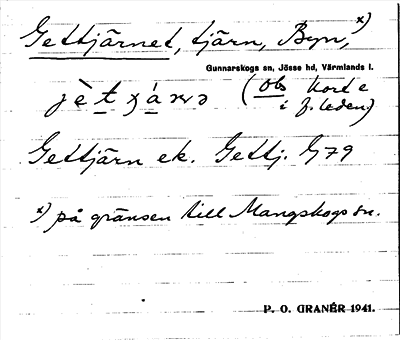 Gettjärnet, tjärn, Byn, x)
Gunnarskogs sn, Jösse hd, Värmlands l.
(Obs kort e
i f. leden)
Gettjärn ek. Gettj. G 79
x) på gränsen till Mangskogs sn.
P. O. GRANÉR 1941.